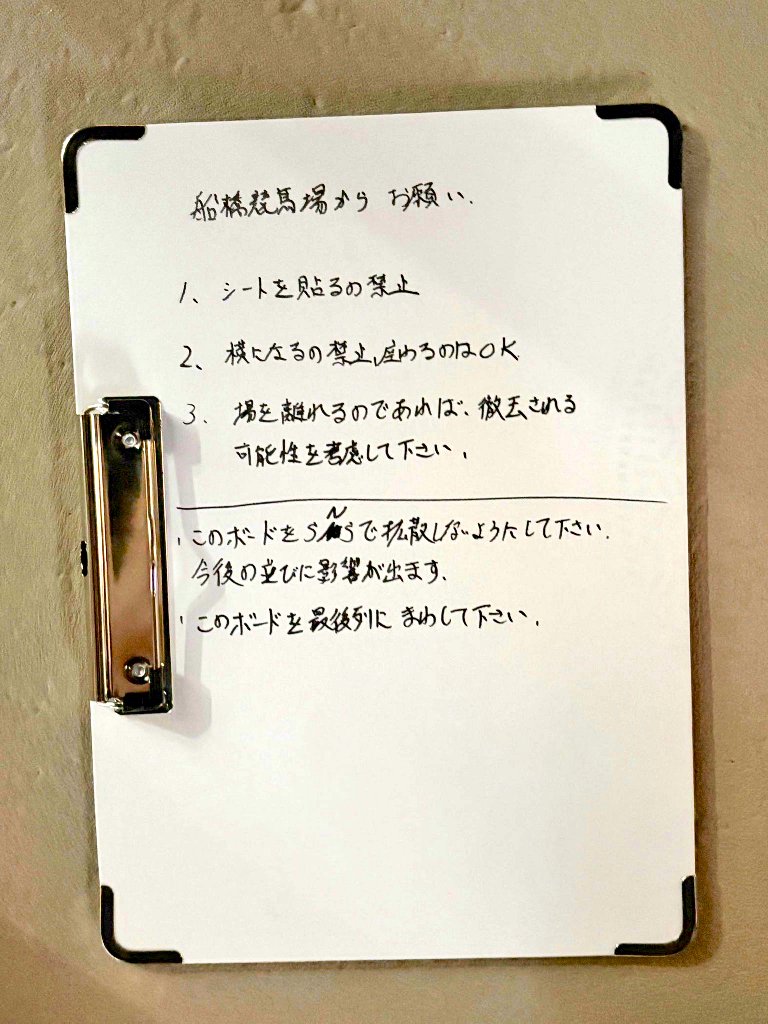 船橋競馬場から お願い.
1、シートを貼るの禁止
2、横になるの禁止、座わるのはOK
3. 場を離れるのであれば、徹去される
可能性を考慮して下さい.
・このボードをSNSで拡散しないようにして下さい.
今後の並びに影響が出ます.
・このボードを最後列に まわして下さい.